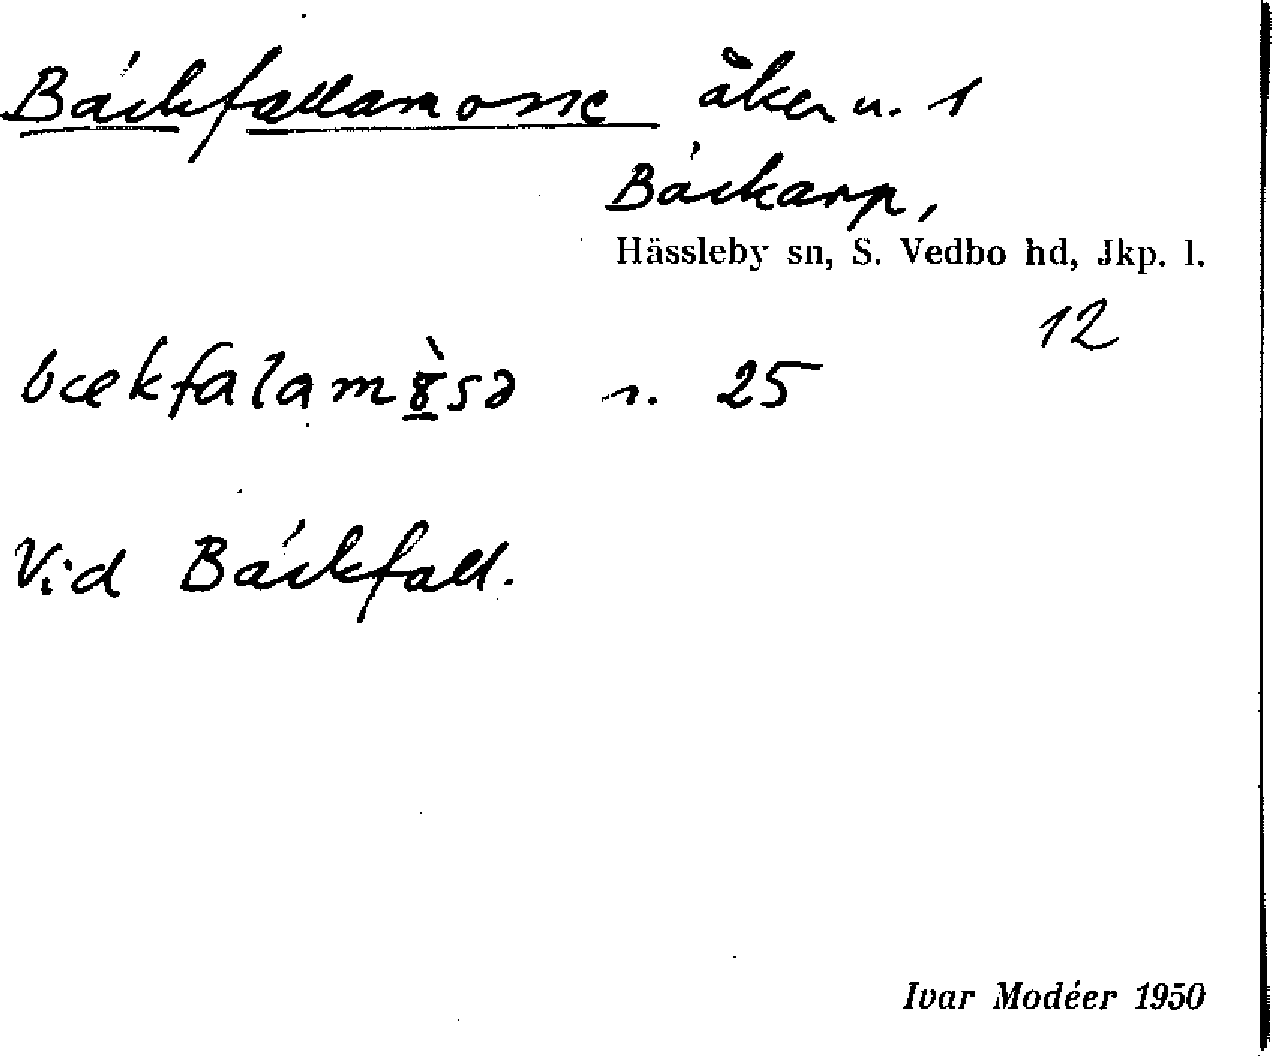 Bäckfallamosse åker u. 1
Bäckarp,
Hässleby sn, S. Vedbo hd, Jkp. l.
12
bækfalamòsə s. 25
Vid Bäckfall.
Ivar Modéer 1950